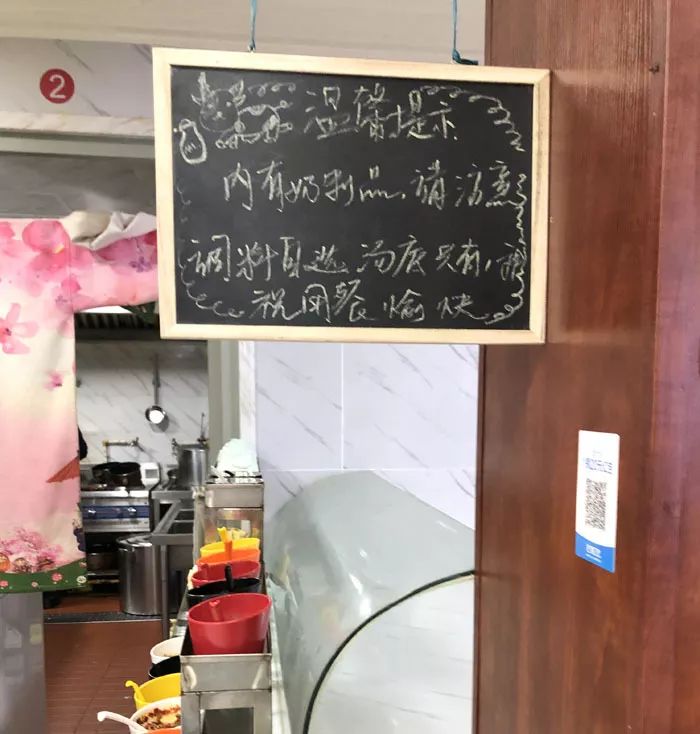 2
温馨提示
内有奶制品，请注意
调料自选 汤底只有
祝用餐愉快